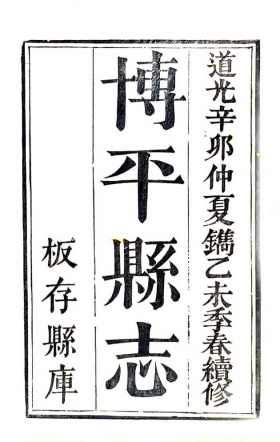 道光辛卯仲夏鐫乙未季春續修
博平縣志
板存縣庫